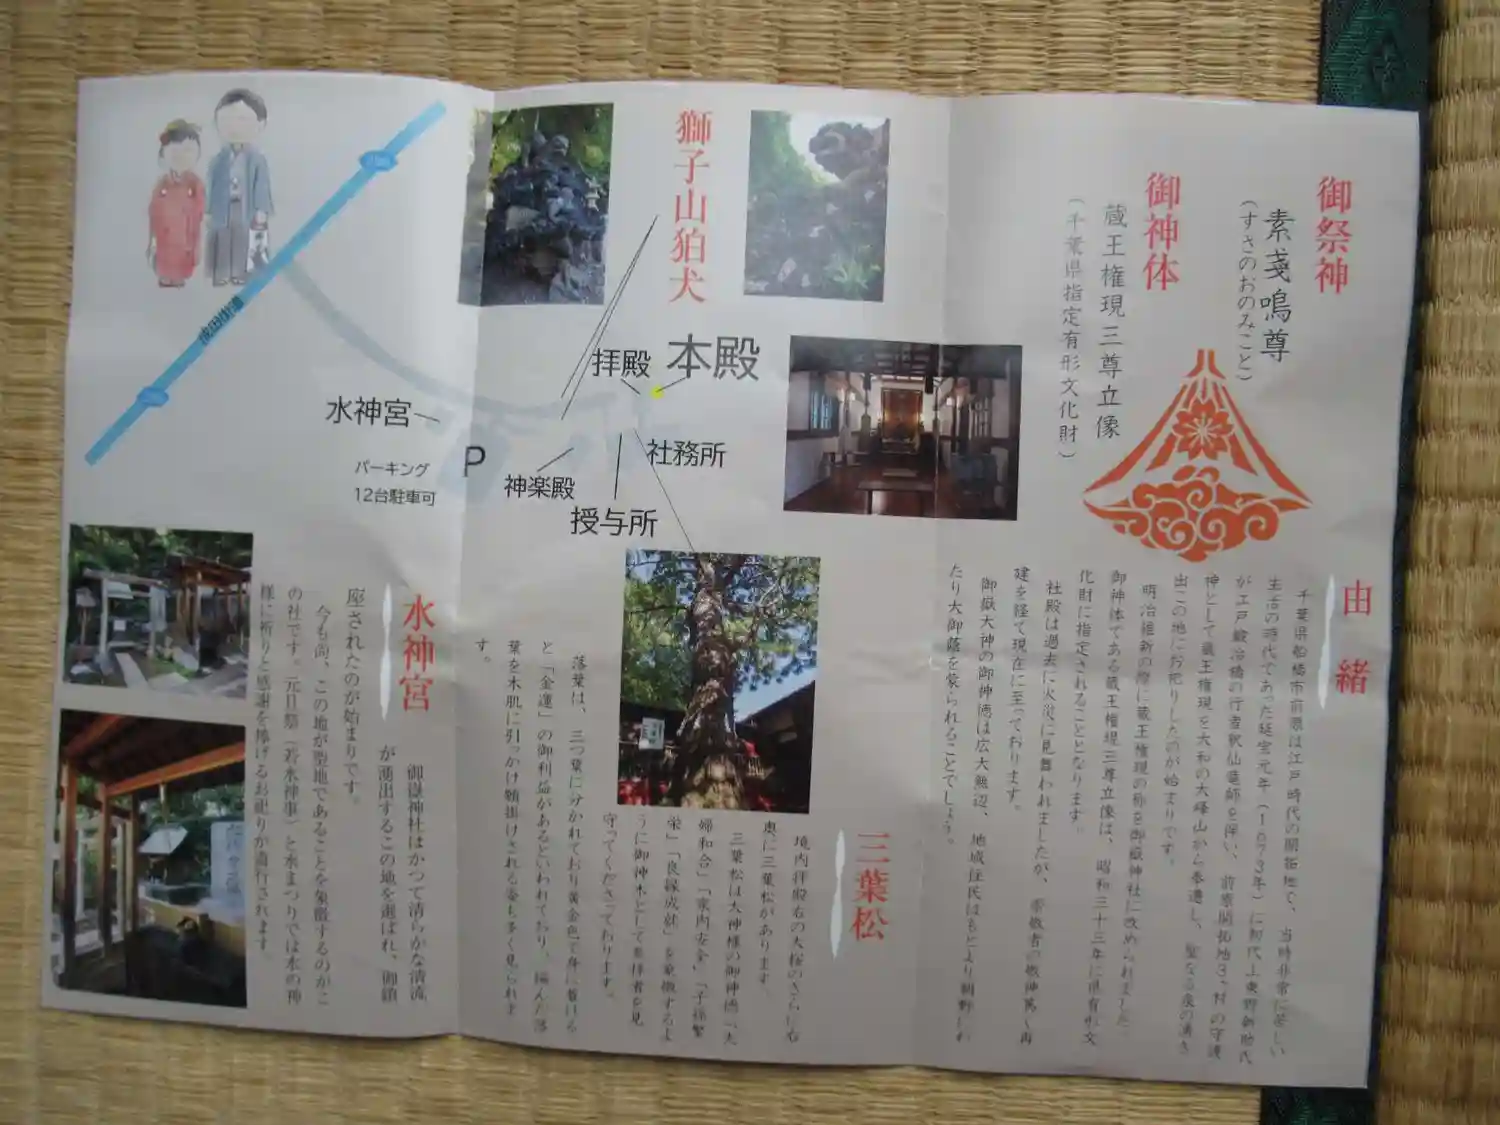 御祭神
素戔嗚尊
(すさのおのみこと)
御神体
蔵王権現三尊立像
(千葉県指定有形文化財)
由緒
千葉県船橋市前原は江戸時代の開拓地で、当時非常に苦しい
生活の時代であった延宝元年(1673年)に初代上東野新助氏
が江戸鍛冶橋の行者釈仙竜師を拝い、前原開拓地3ヶ村の守護
神として蔵王権現を大和の大峰山から奉遷し、聖なる泉の湧き
出この地にお祀りしたのが始まりです。
明治維新の際に蔵王権現の称を御嶽神社に改められました。
御神体である蔵王権現三尊立像は、昭和三十三年に県有形文
化財に指定されることとなります。
社殿は過去に火災に見舞われましたが、崇敬者の敬神篤く再
建を経て現在に至っております。
御嶽大神の御神徳は広大無辺、地域住民はもとより朝野しわ
たり大御蔭を蒙られることでしょう。
獅子山狛犬
本殿
拝殿
社務所
授与所
神楽殿
水神宮
P
パーキング
12台駐車可
成田街道
三葉松
境内拝殿右の大桜のさらに右
奥に三葉松があります。
三葉松は大神様の御神徳「夫
婦和合」「家内安全」「子孫繁
栄」「良縁成就」を象徴するよ
うに御神木として参拝者を見
守ってくださっております。
落葉は、三つ葉に分かれており黄金色で身に着ける
と「金運」の御利益があるといわれており、編んだ落
葉を木肌に引っかけ願掛けされる姿も多く見られま
す。
水神宮
御嶽神社はかつて清らかな清流
が湧出するこの地を選ばれ、御鎮
座されたのが始まりです。
今も尚、この地が聖地であることを象徴するのがこ
の社です。元日祭(若水神事)と水まつりでは水の神
様に祈りと感謝を捧げるお祀りが斎行されます。